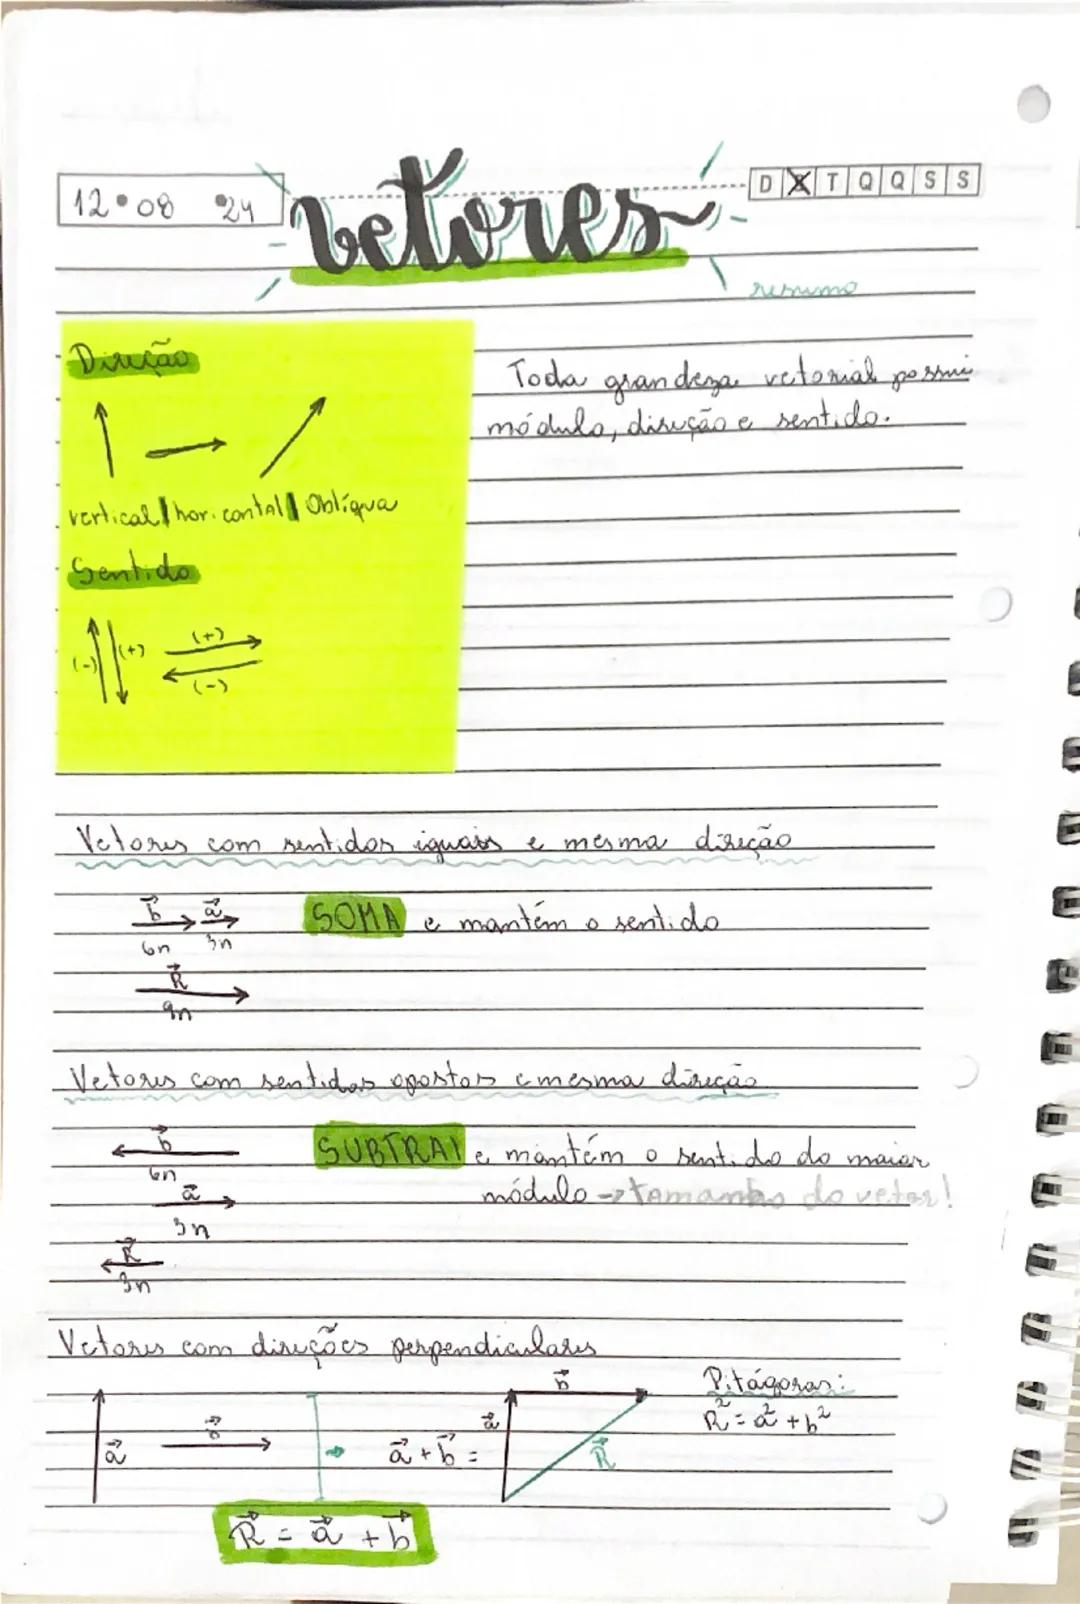 12 • 08 • 24
vetores
D X T Q Q S S
resumo
Direção
vertical | horizontal | Oblíqua
Sentido
(-) (+) (+)
(-)
Toda grandeza vetorial possui
módulo, direção e sentido.
Vetores com sentidos iguais e mesma direção
b a
6n 3n
R
9n
SOMA e mantém o sentido
Vetores com sentidos opostos e mesma direção
b
6n
a
3n
R
3n
SUBTRAI e mantém o sentido do maior
módulo → tamanho do vetor!
Vetores com direções perpendiculares
a b a + b = a b R
Pitágoras:
R² = a² + b²
R = a + b